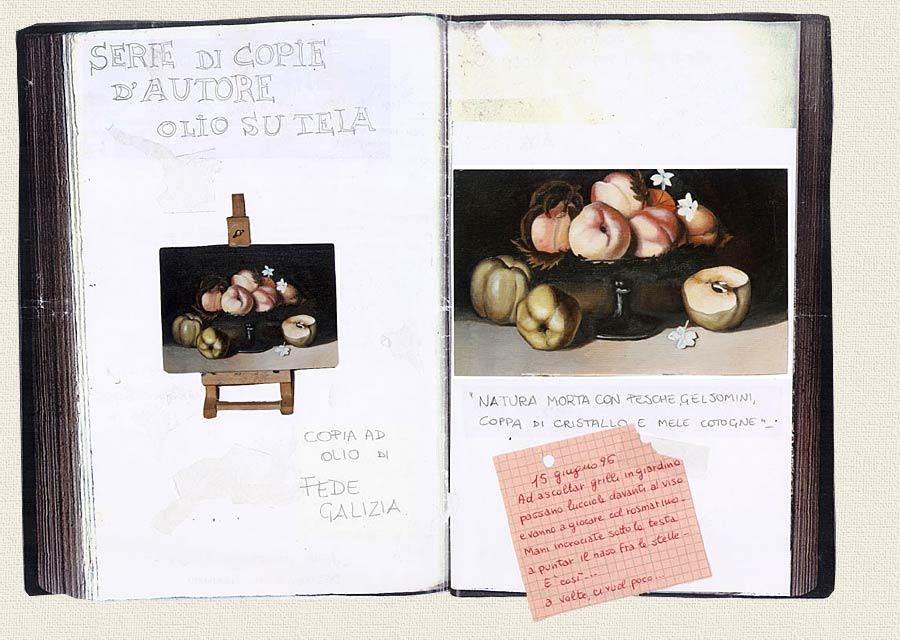 SERIE DI COPIE
D'AUTORE
OLIO SU TELA
COPIA AD
OLIO DI
FEDE
GALIZIA
"NATURA MORTA CON PESCHE, GELSOMINI,
COPPA DI CRISTALLO E MELE COTOGNE"_.
15 giugno 96
Ad ascoltar grilli in giardino
passano lucciole davanti al viso
e vanno a giocare col rosmarino-
Mani incrociate sotto la testa
a puntar il naso fra le stelle-
E' così-...
a volte, ci vuol poco...